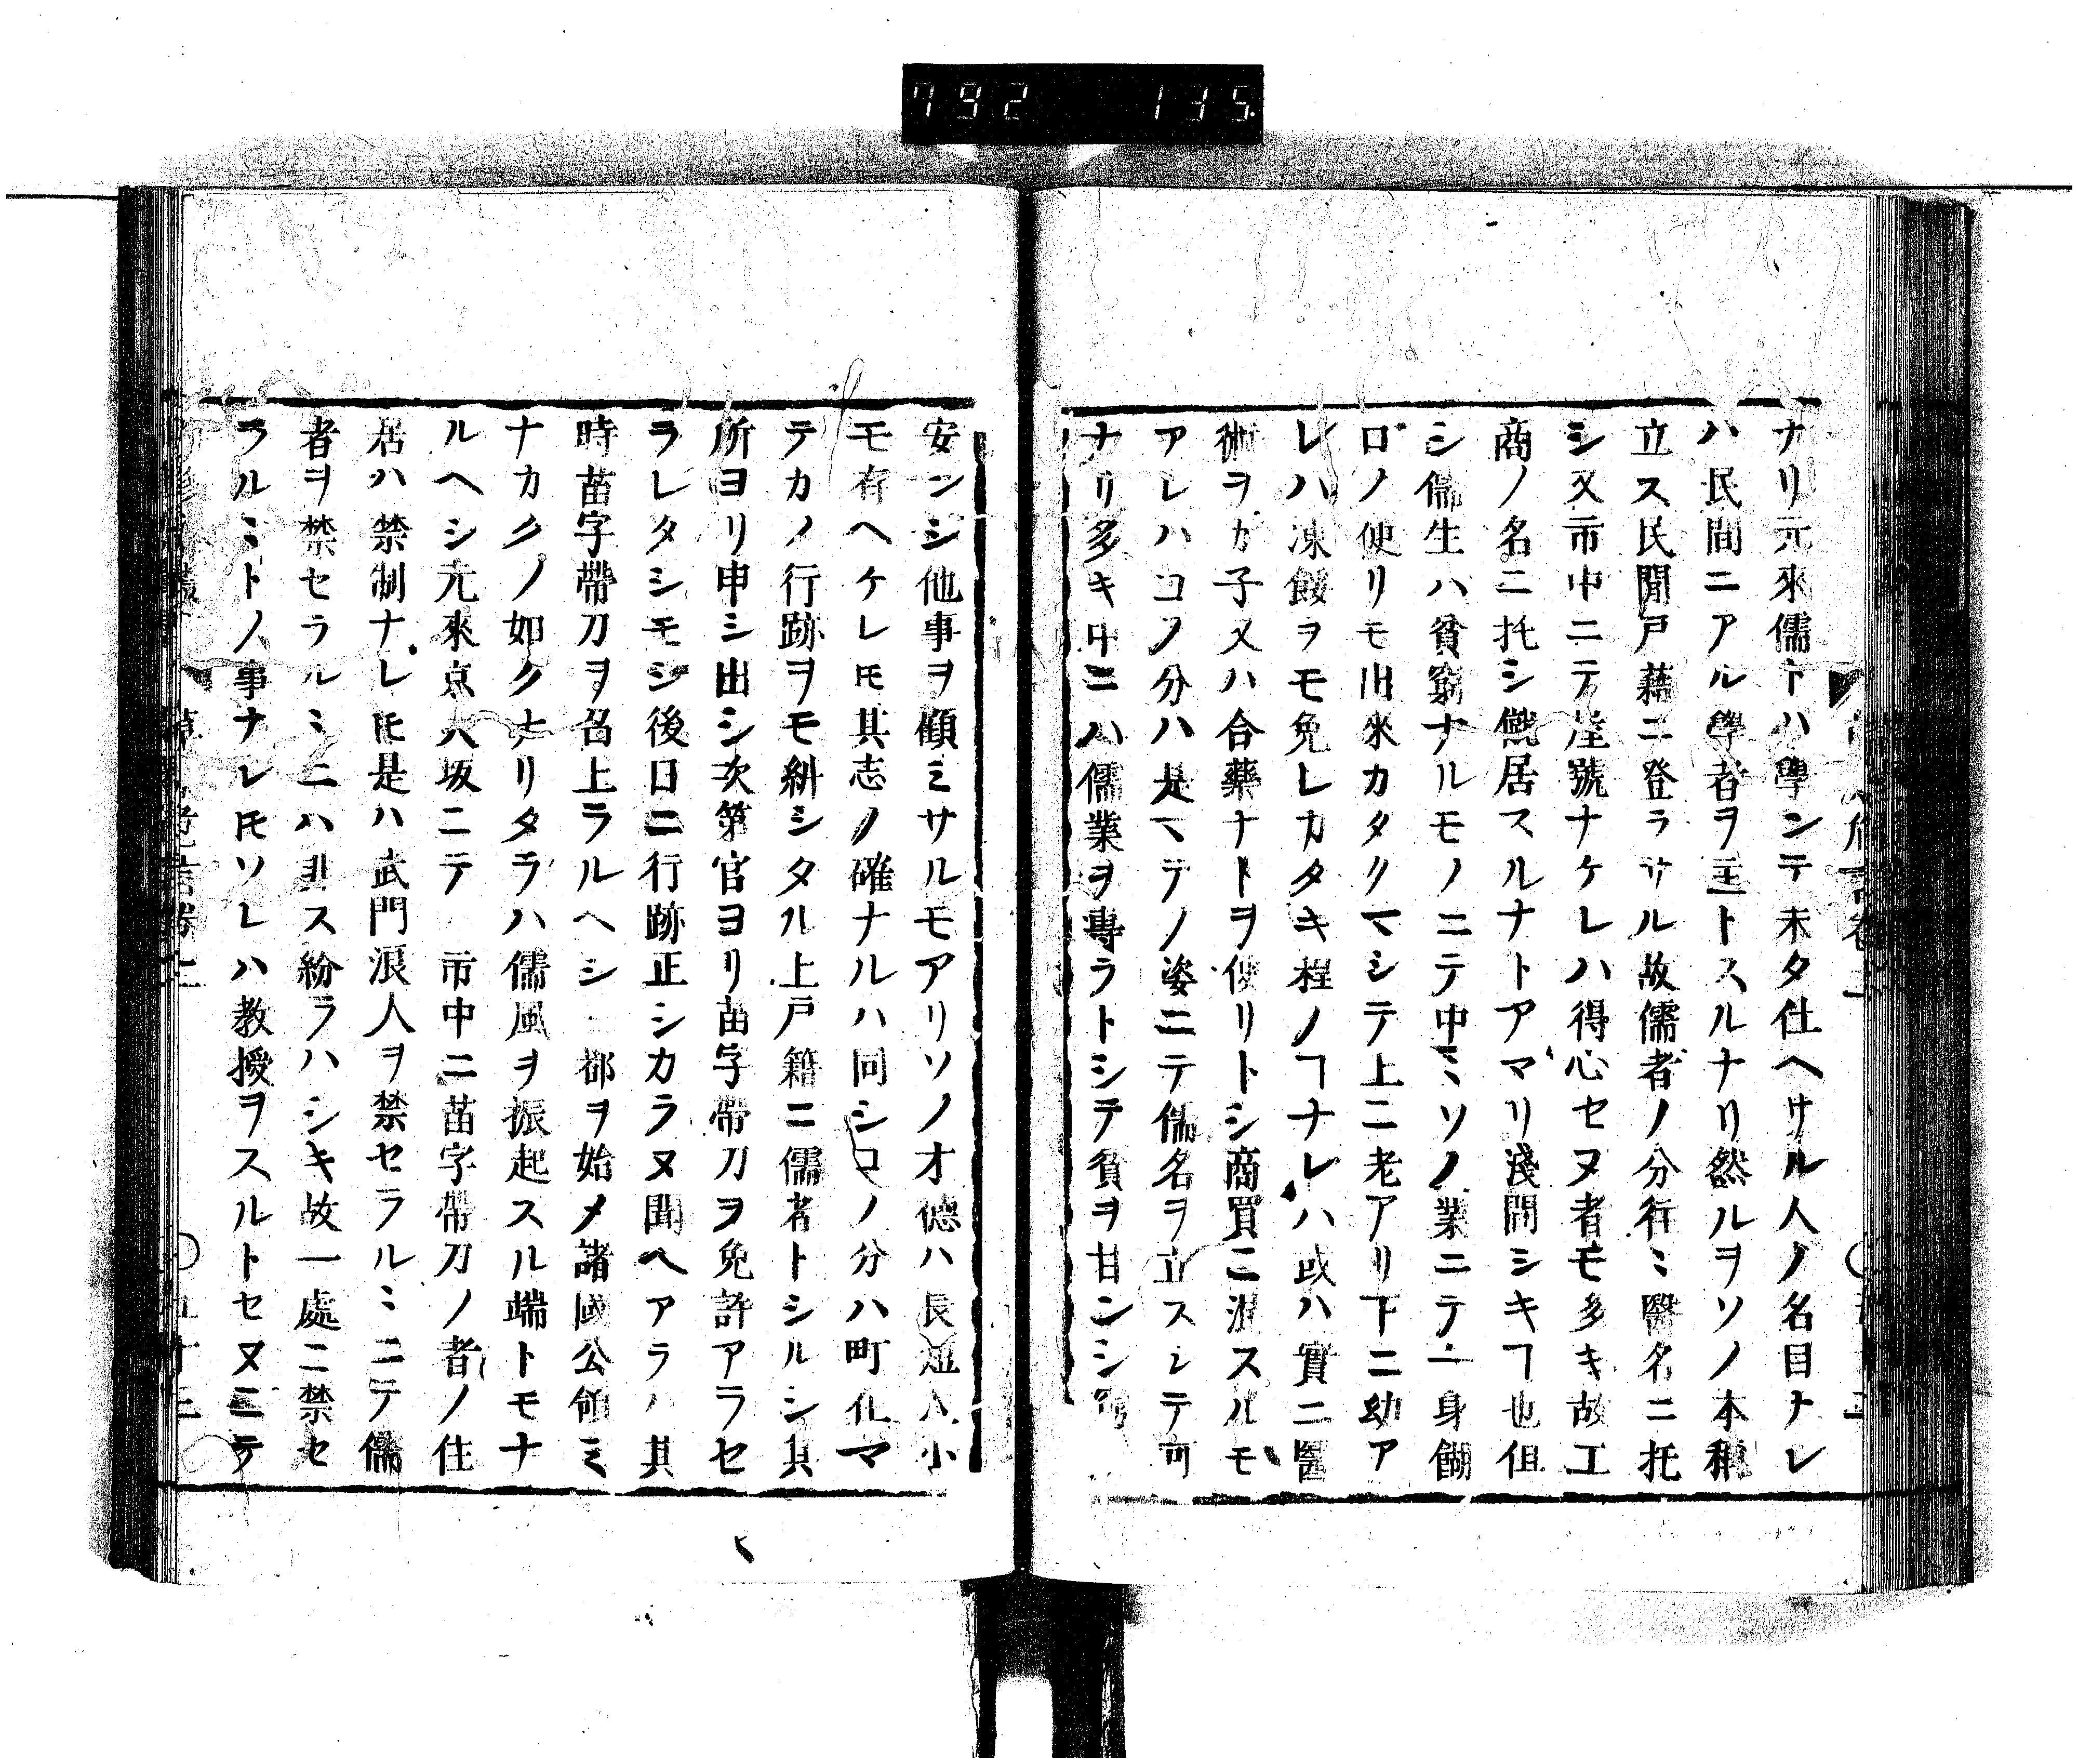 792 135
ナリ元來儒トハ學ンテ未タ仕ヘサル人ノ名目ナレ
ハ民間ニアル學者ヲ主トスルナリ然ルヲソノ本稱
立ス民間戸藉ニ登ラサル故儒者ノ分行ミ醫名ニ托
シ又市中ニテ産號ナケレハ得心セヌ者モ多キ故工
商ノ名ニ托シ僦居スルナトアマリ淺間シキヿ也但
シ儒生ハ貧窮ナルモノニテ中ミソノ業ニテ一身餬
口ノ便リモ出來カタクマシテ上ニ老アリ下ニ幼ア
レハ凍餒ヲモ免レカタキ程ノヿナレハ或ハ實ニ醫
術ヲカ子又ハ合藥ナトヲ便リトシ商買ニ混スルモ
アレハコノ分ハ是マテノ姿ニテ儒名ヲ立スシテ可
ナリ多キ中ニハ儒業ヲ專ラトシテ貧ヲ甘ンシ
安ンシ他事ヲ顧ミサルモアリソノオ德ハ長短大小
モ有ヘケレ𪜈其志ノ確ナルハ同シコノ分ハ町化マ
テカノ行跡ヲモ糾シタル上戸籍ニ儒者トシルシ其
所ヨリ申シ出シ次第官ヨリ苗字帶刀ヲ免許アラセ
ラレタシモシ後日ニ行跡正シカラヌ聞ヘアラハ其
時苗字帶刀ヲ召上ラルヘシ三都ヲ始メ諸國公領ミ
ナカクノ如クナリタラハ儒風ヲ振起スル端トモナ
ルヘシ元來京大坂ニテ市中ニ苗字帶刀ノ者ノ住
居ハ禁制ナレ𪜈是ハ武門浪人ヲ禁セラルミニテ儒
者ヲ禁セラルミニハ非ス紛ラハシキ故一處ニ禁セ
ラルミトノ事ナレ𪜈ソレハ教授ヲスルトセヌニテ